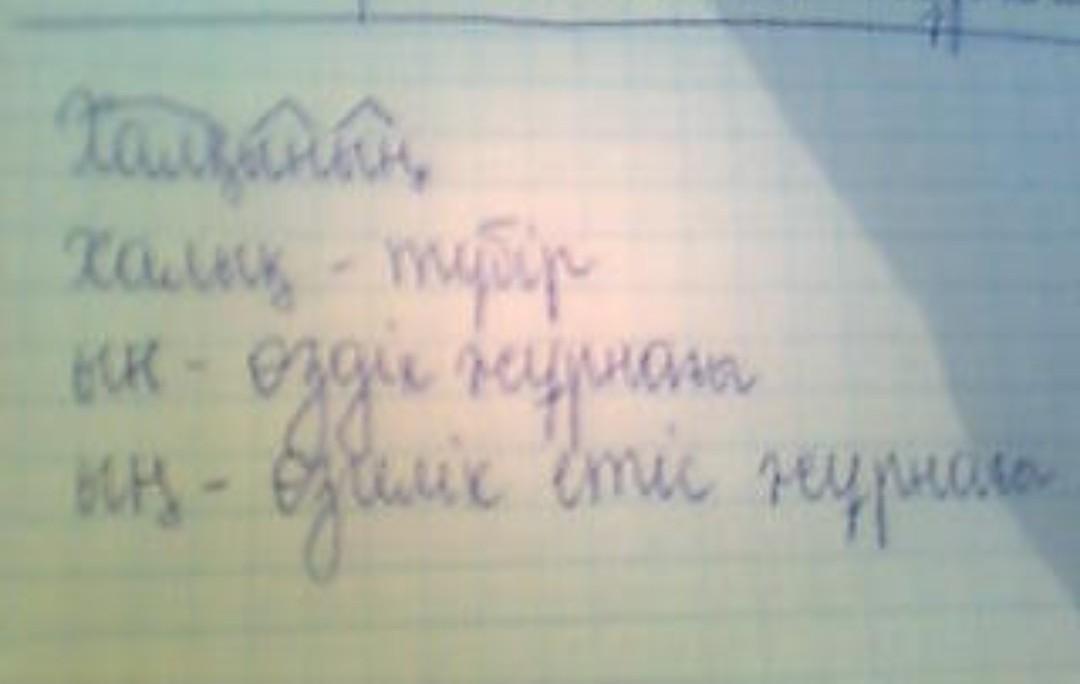 Халқының,
халық - түбір
ын - өздік жұрнағы
ың - өзгелік етіс жұрнағы